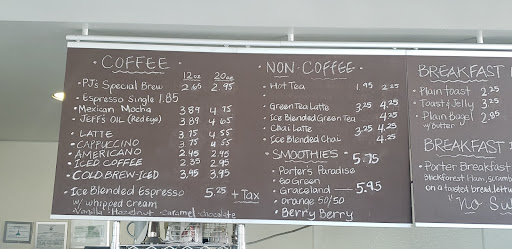 · COFFEE ·
12oz 20oz
· PJ's Special Brew 2.65 2.95
· Espresso Single 1.85
· Mexican Mocha 3.89 4.75
· JEFF'S OIL (Red eye) 3.89 4.65
· LATTE 3.75 4.55
· CAPPUCCINO 3.75 4.55
· AMERICANO 2.45 2.95
· ICED COFFEE 2.85 2.95
· COLD BREW-ICED 3.45 3.95
· Ice Blended Espresso 5.25 + Tax
w/ whipped cream
Vanilla · Hazelnut · Caramel · Chocolate
· NON-COFFEE ·
· Hot Tea 1.95 2.25
Green Tea Latte 3.25 4.25
Ice Blended Green Tea 4.25
Chai Latte 3.25 4.25
Ice Blended Chai 4.25
· SMOOTHIES · 5.75
· Porter's Paradise
· Go Green
· Graceland 5.95
· orange 50/50
· Berry Berry
BREAKFAST
· Plain toast 2.25
· Toast & Jelly 3.25
· Plain Bagel 2.95
w/ Butter
BREAKFAST
· Porter Breakfast
on a toasted bread, lettu
"No Su